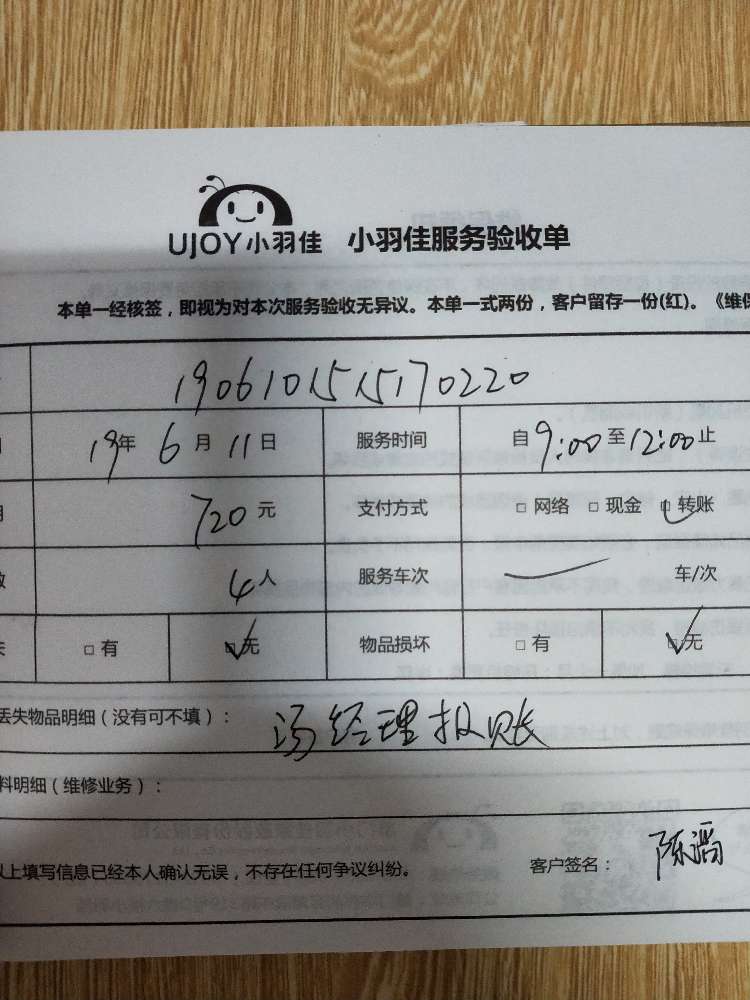 UJOY小羽佳 小羽佳服务验收单
本单一经核签，即视为对本次服务验收无异议。本单一式两份，客户留存一份(红)。《维保
1906101515170220
19年 6月 11日 服务时间 自9:00至12:00止
720元 支付方式 □网络 □现金 □转账
4人 服务车次 车/次
□有 □无 物品损坏 □有 □无
丢失物品明细（没有可不填）： 汤经理报账
料明细（维修业务）：
以上填写信息已经本人确认无误，不存在任何争议纠纷。 客户签名：